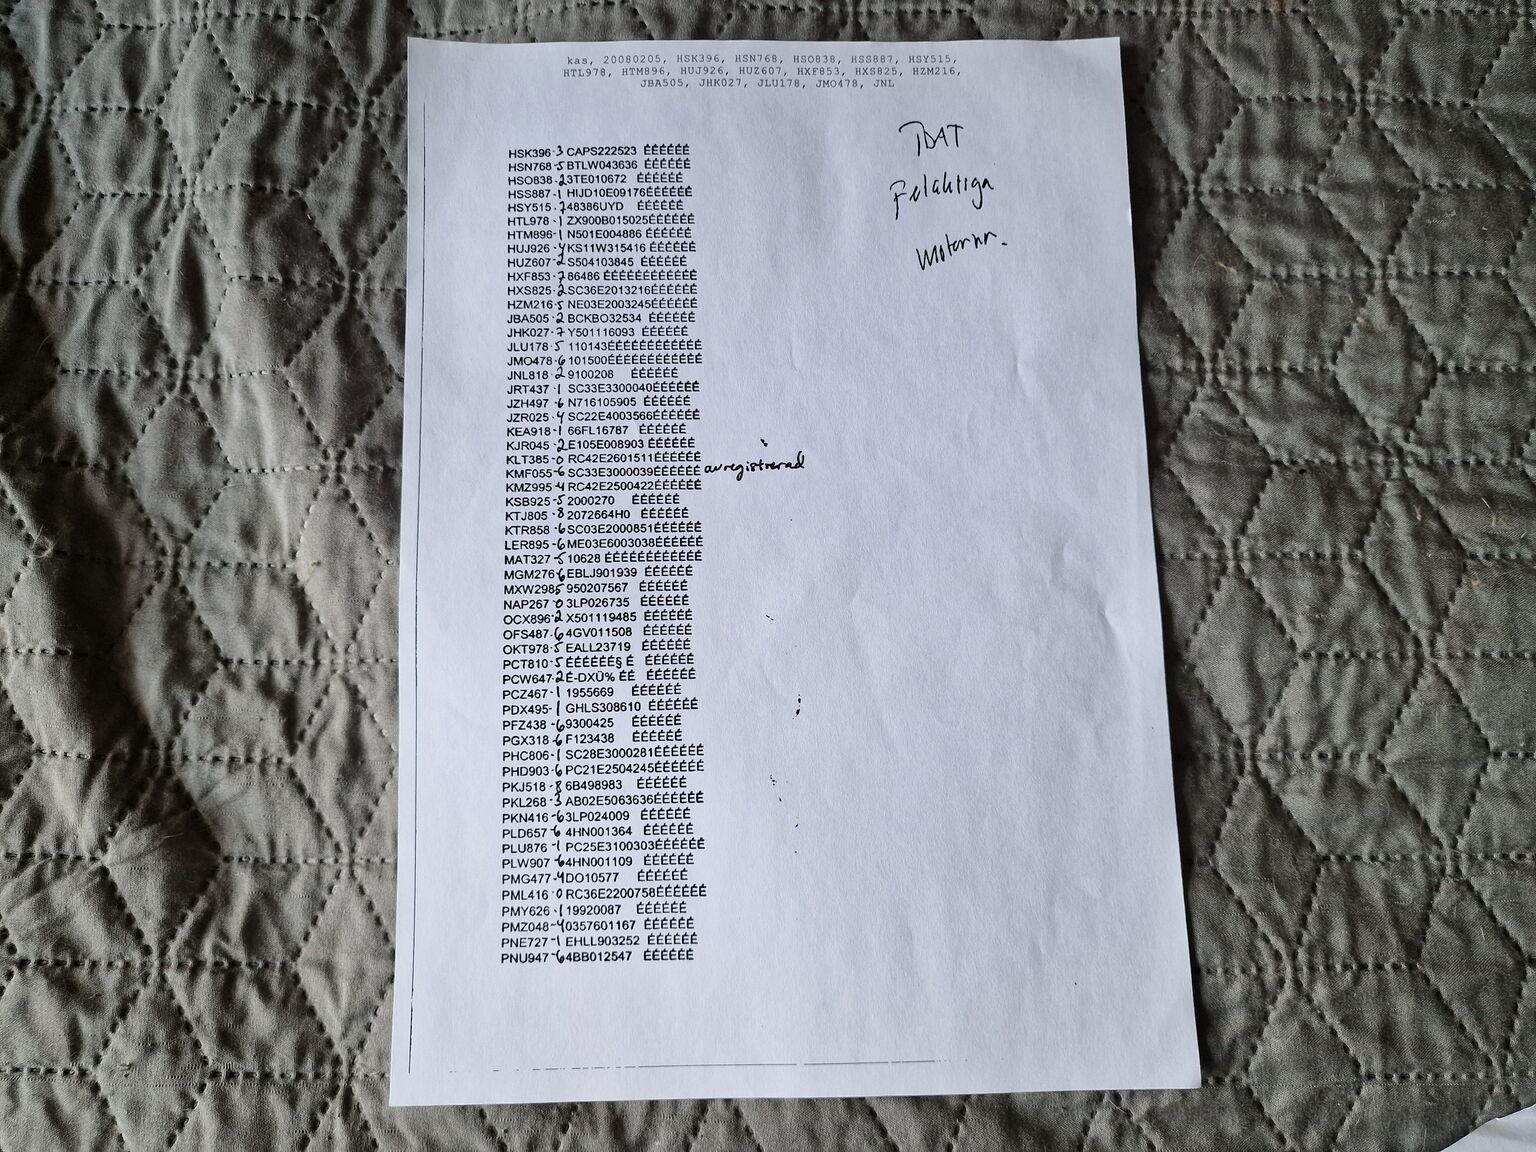 kas, 20080205, HSK396, HSN768, HSO838, HSS887, HSY515,
HTL978, HTM896, HUJ926, HUZ607, HXF853, HXS825, HZM216,
JBA505, JHK027, JLU178, JMO478, JNL
TDAT
Felaktiga
motornr.
HSK396-3 CAPS222523 ÉÉÉÉÉÉ
HSN768-5 BTLW043636 ÉÉÉÉÉÉ
HSO838-23TE010672 ÉÉÉÉÉÉ
HSS887-1 HIJD10E09176ÉÉÉÉÉÉ
HSY515-748386UYD ÉÉÉÉÉÉ
HTL978-1 ZX900B015025ÉÉÉÉÉÉ
HTM896-1 N501E004886 ÉÉÉÉÉÉ
HUJ926-4KS11W315416 ÉÉÉÉÉÉ
HUZ607-2S504103845 ÉÉÉÉÉÉ
HXF853-786486 ÉÉÉÉÉÉÉÉÉÉÉÉ
HXS825-2 SC36E2013216ÉÉÉÉÉÉ
HZM216-5 NE03E2003245ÉÉÉÉÉÉ
JBA505-2 BCKBO32534 ÉÉÉÉÉÉ
JHK027-7 Y501116093 ÉÉÉÉÉÉ
JLU178-5 110143ÉÉÉÉÉÉÉÉÉÉÉÉ
JMO478-6 101500ÉÉÉÉÉÉÉÉÉÉÉÉ
JNL818-2 9100208 ÉÉÉÉÉÉ
JRT437-1 SC33E3300040ÉÉÉÉÉÉ
JZH497-6 N716105905 ÉÉÉÉÉÉ
JZR025-4 SC22E4003566ÉÉÉÉÉÉ
KEA918-1 66FL16787 ÉÉÉÉÉÉ
KJR045-2E105E008903 ÉÉÉÉÉÉ
KLT385-0 RC42E2601511ÉÉÉÉÉÉ
KMF055-6 SC33E3000039ÉÉÉÉÉÉ avregistrerad
KMZ995-4 RC42E2500422ÉÉÉÉÉÉ
KSB925-5 2000270 ÉÉÉÉÉÉ
KTJ805-8 2072664H0 ÉÉÉÉÉÉ
KTR858-6SC03E2000851ÉÉÉÉÉÉ
LER895-6 ME03E6003038ÉÉÉÉÉÉ
MAT327-5 10628 ÉÉÉÉÉÉÉÉÉÉÉÉ
MGM276-6 EBLJ901939 ÉÉÉÉÉÉ
MXW2985 950207567 ÉÉÉÉÉÉ
NAP267-0 3LP026735 ÉÉÉÉÉÉ
OCX896-2 X501119485 ÉÉÉÉÉÉ
OFS487-6 4GV011508 ÉÉÉÉÉÉ
OKT978-5 EALL23719 ÉÉÉÉÉÉ
PCT810-5 ÉÉÉÉÉÉ§ É ÉÉÉÉÉÉ
PCW647-2 É-DXÜ% ÉÉ ÉÉÉÉÉÉ
PCZ467-1 1955669 ÉÉÉÉÉÉ
PDX495-1 GHLS308610 ÉÉÉÉÉÉ
PFZ438-69300425 ÉÉÉÉÉÉ
PGX318-6 F123438 ÉÉÉÉÉÉ
PHC806-1 SC28E3000281ÉÉÉÉÉÉ
PHD903-6 PC21E2504245ÉÉÉÉÉÉ
PKJ518-8 6B498983 ÉÉÉÉÉÉ
PKL268-3 AB02E5063636ÉÉÉÉÉÉ
PKN416-63LP024009 ÉÉÉÉÉÉ
PLD657-6 4HN001364 ÉÉÉÉÉÉ
PLU876-1 PC25E3100303ÉÉÉÉÉÉ
PLW907-64HN001109 ÉÉÉÉÉÉ
PMG477-4DO10577 ÉÉÉÉÉÉ
PML416-0 RC36E2200758ÉÉÉÉÉÉ
PMY626-1 19920087 ÉÉÉÉÉÉ
PMZ048-40357601167 ÉÉÉÉÉÉ
PNE727-1 EHLL903252 ÉÉÉÉÉÉ
PNU947-64BB012547 ÉÉÉÉÉÉ